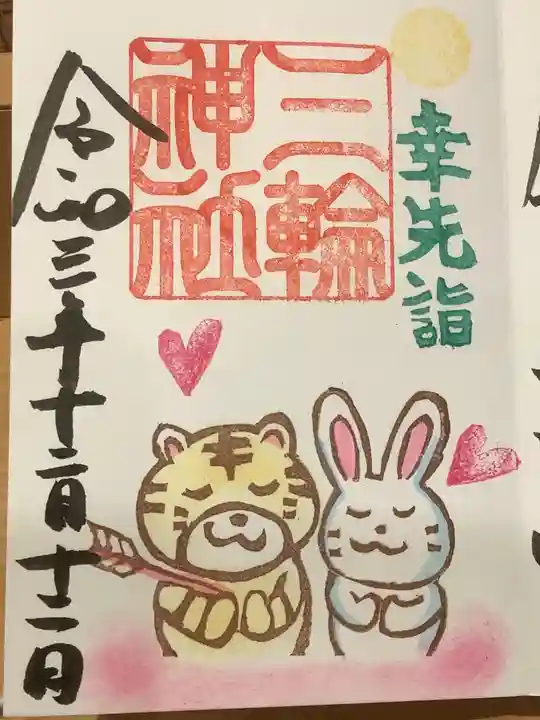 幸先詣
三輪
神社
令和三年十二月十二日